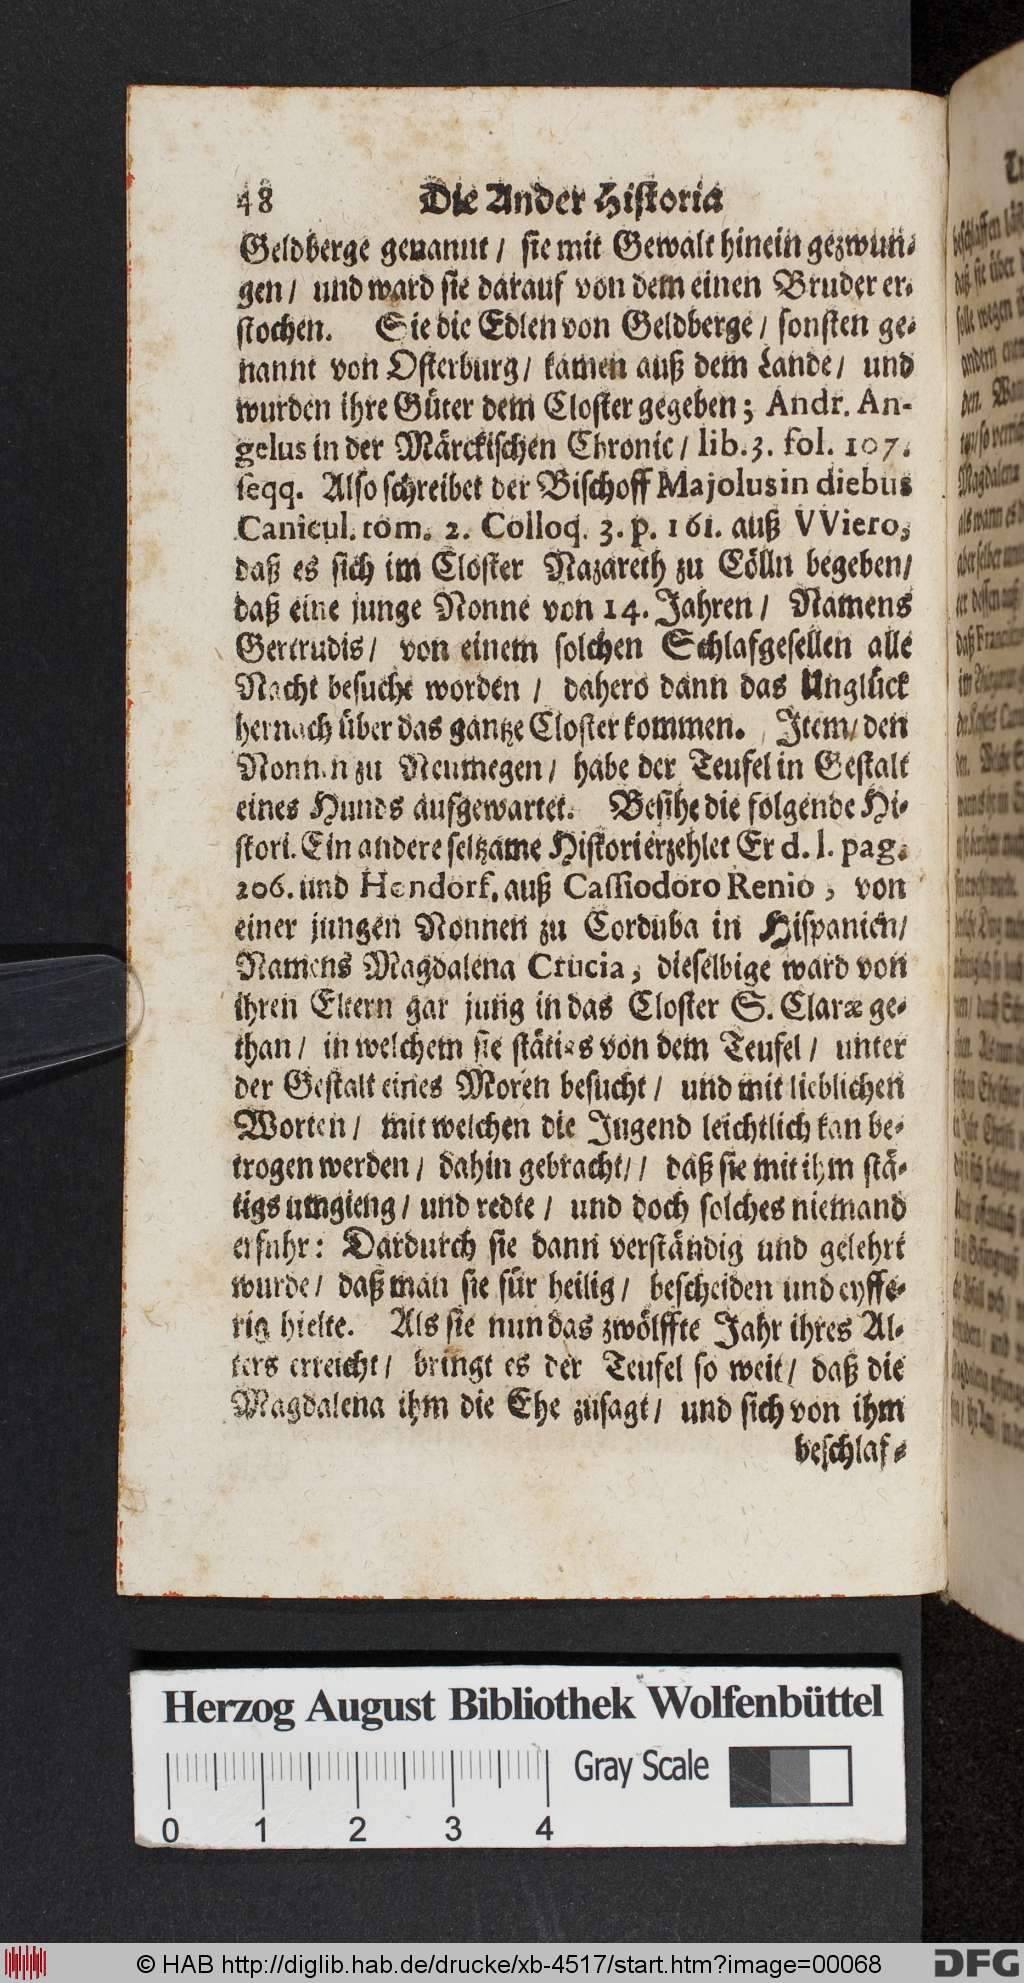 48 Die Ander Historia
Geldberge genannt / sie mit Gewalt hinein gezwun-
gen / und ward sie darauf von dem einen Bruder er-
stochen. Sie die Edlen von Geldberge / sonsten ge-
nannt von Osterburg / kamen auß dem Lande / und
wurden ihre Güter dem Closter gegeben; Andr. An-
gelus in der Märckischen Chronic / lib. 3. fol. 107.
seqq. Also schreibet der Bischoff Majolus in diebus
Canicul. tom. 2. Colloq. 3. p. 161. auß VViero,
daß es sich im Closter Nazareth zu Cölln begeben /
daß eine junge Nonne von 14. Jahren / Namens
Gertrudis / von einem solchen Schlafgesellen alle
Nacht besucht worden / dahero dann das Unglück
hernach über das gantze Closter kommen. Item / den
Nonnen zu Neumegen / habe der Teufel in Gestalt
eines Hunds aufgewartet. Besihe die folgende Hi-
stori. Ein andere seltzame Histori erzehlet Er d. l. pag.
206. und Hondorf. auß Cassiodoro Renio, von
einer jungen Nonnen zu Corduba in Hispanien /
Namens Magdalena Crucia, dieselbige ward von
ihren Eltern gar jung in das Closter S. Claræ ge-
than / in welchem sie stätigs von dem Teufel / unter
der Gestalt eines Moren besucht / und mit lieblichen
Worten / mit welchen die Jugend leichtlich kan be-
trogen werden / dahin gebracht / / daß sie mit ihm stä-
tigs umgieng / und redte / und doch solches niemand
erfuhr: Dardurch sie dann verständig und gelehrt
wurde / daß man sie für heilig / bescheiden und eyffe-
rig hielte. Als sie nun das zwölffte Jahr ihres Al-
ters erreicht / bringt es der Teufel so weit / daß die
Magdalena ihm die Ehe zusagt / und sich von ihm
beschlaf-
Herzog August Bibliothek Wolfenbüttel
Gray Scale
0 1 2 3 4
© HAB http://diglib.hab.de/drucke/xb-4517/start.htm?image=00068
DFG